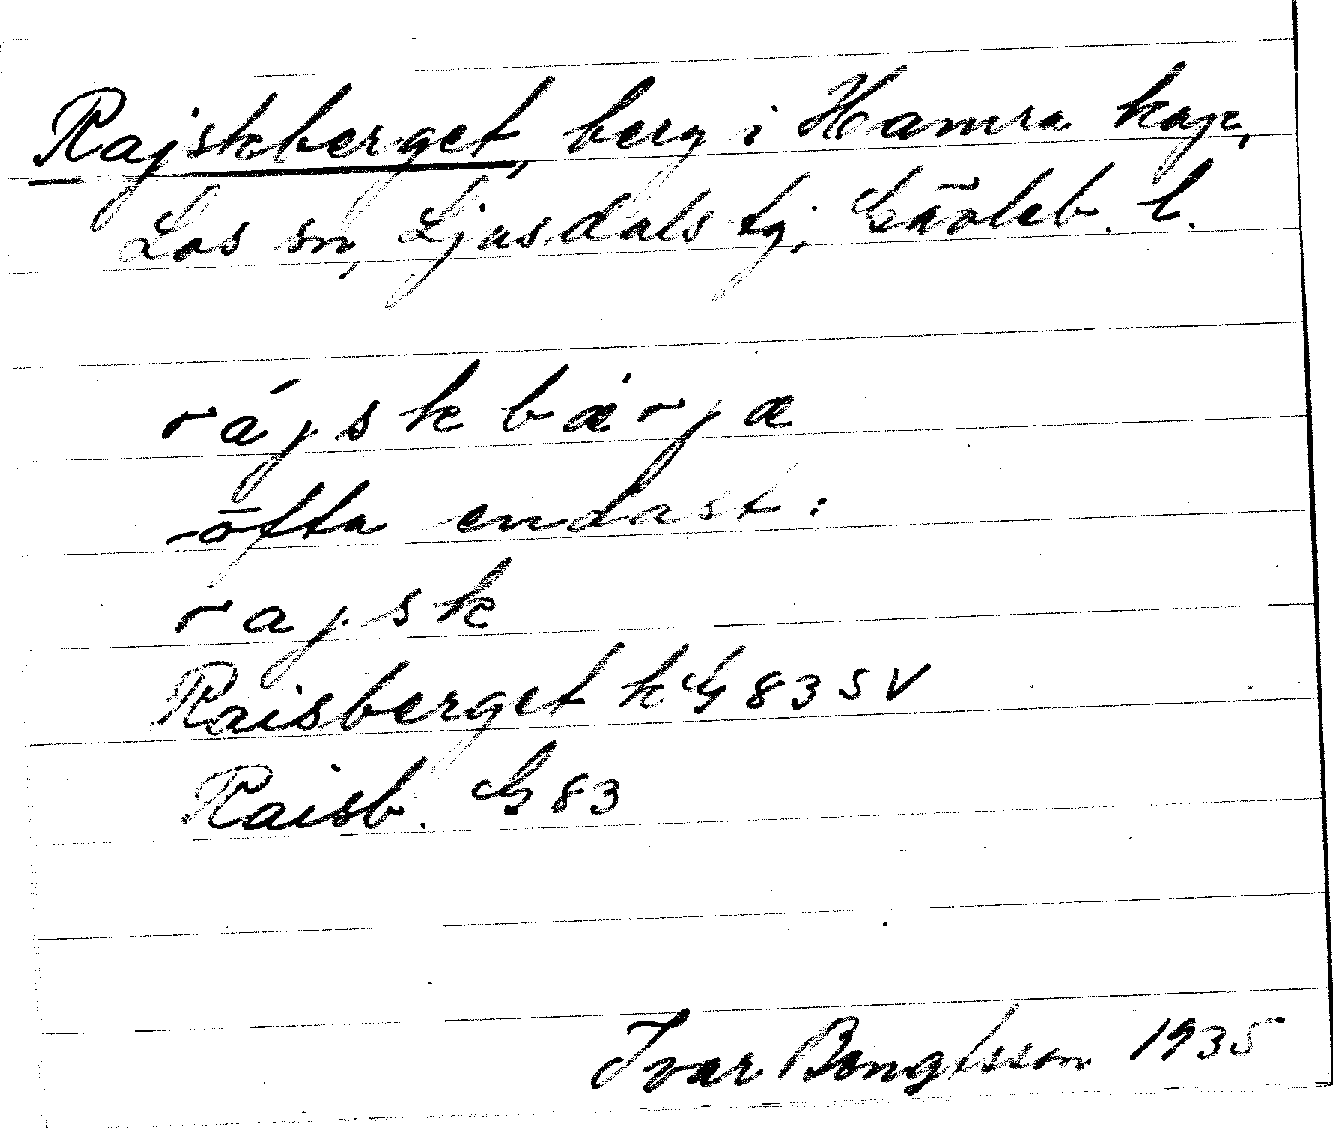 Rajskberget, berg i Hamra kap,
Los sn, Ljusdals tg, Gävleb. l.
rájskbærja
ofta endast:
rajsk
Raisberget k G 83 SV
Raisb. G 83
Ivar Bengtsson 1935